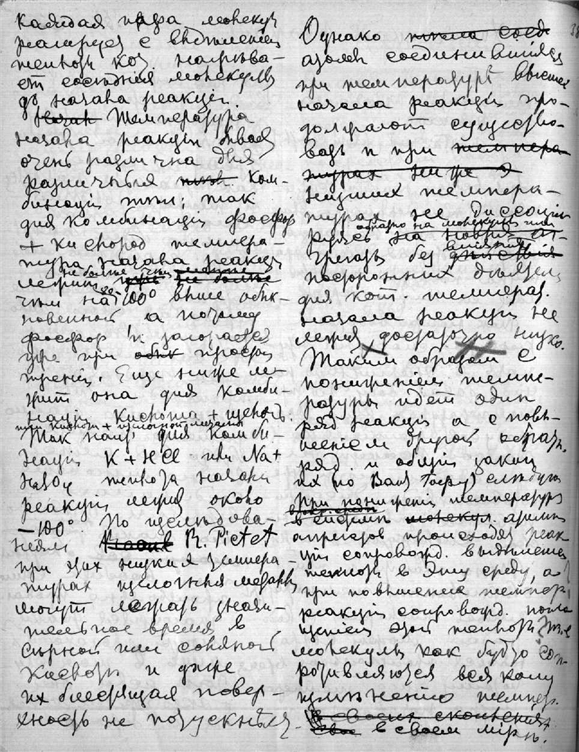 каждая пара молекул
реагируя с выделеніем
теплоты коя нагрева-
ет соседния молекулы
до начала реакціи.
Температура
начала реакціи бывает
очень различна для
различныхъ ком-
бинацій тел; так
для комбинаціи фосфор
+ кислород темпера-
тура начала реакціи
не более чем
лежит
чем на 100° выше обык-
новенной а потому
фосфор и загорается
уже при простом
треніи. Еще ниже ле-
жит она для комби-
націи кислота + щелочь.
или кислота + щелочной металл
Так напр. для комби-
націи K + HCl или Na +
теплота начала
реакціи лежит около
-100°. По изследова-
ніям R. Pictet
при этих низких темпера-
турах щелочные металлы
могут лежать значи-
тельное время в
серной или соляной
кислоте и даже
их блестящая повер-
хность не потускнеет
Однако
атомы соединившіеся
при температуре высшей
начала реакціи про-
должают существо-
вать и при
низших темпера-
турах не диссоціи-
руясь обратно на молекулы или
без вліянія
посторонних
для кот. темпера.
начала реакціи не
лежит достаточно низко.
Таким образом с
пониженіем темпе-
ратуры идет один
ряд реакцій а с повы-
шеніем другой
ряд и общій закон
их по Вант Гоффу следующ
При пониженіи температуры
в системе
происходят реак-
ціи сопровожд. выделеніем
теплоты в эту среду, а
при повышеніи темпер.
реакціи сопровожд. погло-
щеніем этой теплоты т.е.
молекулы как будто соп-
ротивляются всякому
измененію темпер.
в своем міре.